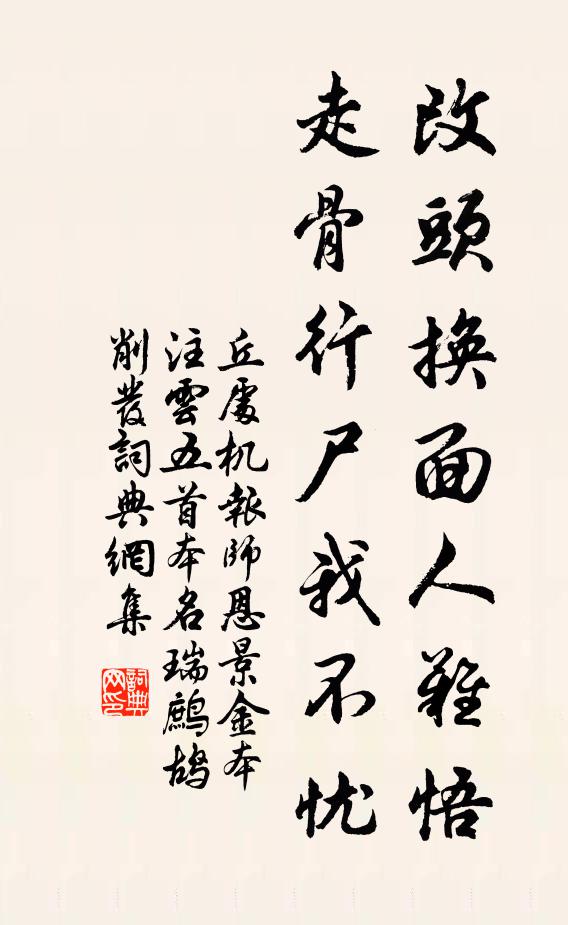 改頭換面人難悟
走骨行尸我不忧
丘處机報師恩景金本
注雲五首本名瑞鷓鴣
削發詞典網集
詞典网印